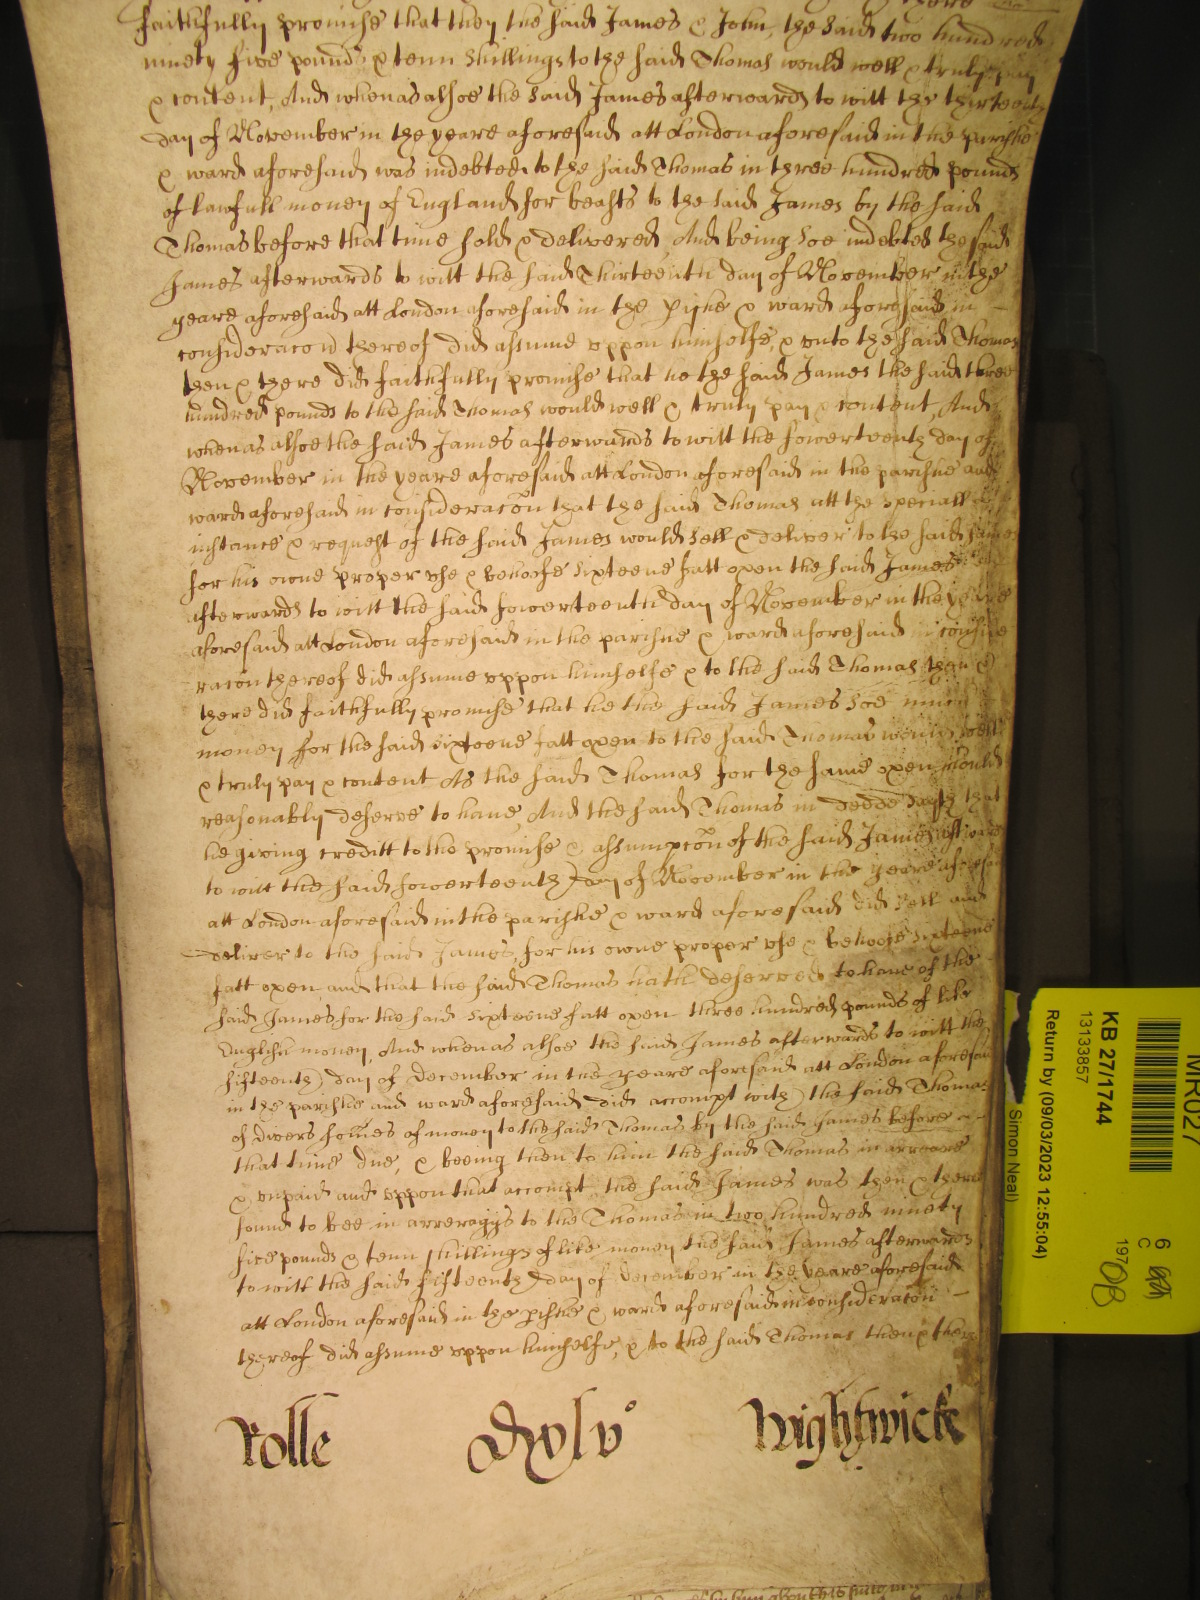 there
faithfully promise that they the said James & John, the said two hundred
ninety five pounds & tenn shillings to the said Thomas would well & truly pay
& content, And whenas alsoe the said James afterwards to witt the thirteenth
day of November in the yeare aforesaid att London aforesaid in the parishe
& ward aforesaid was indebted to the said Thomas in three hundred pounds
of lawfull money of England for beasts to the said James by the said
Thomas before that time sold & delivered, And being soe indebted the said
James afterwards to witt the said Thirteenth day of November in the
yeare aforesaid att London aforesaid in the pishe & ward aforesaid in
consideracon thereof did assume uppon himselfe, & unto the said Thomas
then & there did faithfully promise that he the said James the said three
hundred pounds to the said Thomas would well & truly pay & content, And
whenas alsoe the said James afterwards to witt the fowerteenth day of
November in the yeare aforesaid att London aforesaid in the parishe and
ward aforesaid in consideracon that the said Thomas att the speciall
instance & request of the said James would sell & deliver to the said James
for his owne proper use & behoofe sixteene fatt oxen the said James
afterwards to witt the said fowerteenth day of November in the yeare
aforesaid att London aforesaid in the parishe & ward aforesaid in conside
racon thereof did assume uppon himselfe & to the said Thomas then &
there did faithfully promise that he the said James soe much
money for the said sixteene fatt oxen to the said Thomas would well
& truly pay & content As the said Thomas for the same oxen should
reasonably deserve to have, And the said Thomas in deede sayth that
he giving creditt to the promise & assumpcon of the said James afterwards
to witt the said fowerteenth day of November in the yeare aforesaid
att London aforesaid in the parishe & ward aforesaid did sell and
deliver to the said James, for his owne proper use & behoofe sixteene
fatt oxen, and that the said Thomas hath deserved to have of the
said James for the said sixteene fatt oxen three hundred pounds of like
English money, And whenas alsoe the said James afterwards to witt the
fifteenth day of December in the yeare aforesaid att London aforesaid
in the parishe and ward aforesaid did accompt with the said Thomas
of divers somes of money to the said Thomas by the said James before
that time due, & beeing then to him the said Thomas in arreare
& unpaid and uppon that accompt the said James was then & there
found to bee in arreragys to the Thomas in two hundred ninety
five pounds & tenn shillings of like money the said James afterwards
to witt the said fifteenth day of December in the yeare aforesaid
att London aforesaid in the pishe & ward aforesaid in consideracon
thereof did assume uppon himselfe, & to the said Thomas then & there
Rolle Dxlvo Wightwicke
MR027
KB 27/1744
13133857
Return by (09/03/2023 12:55:04)
Simon Neal)
6
C
197